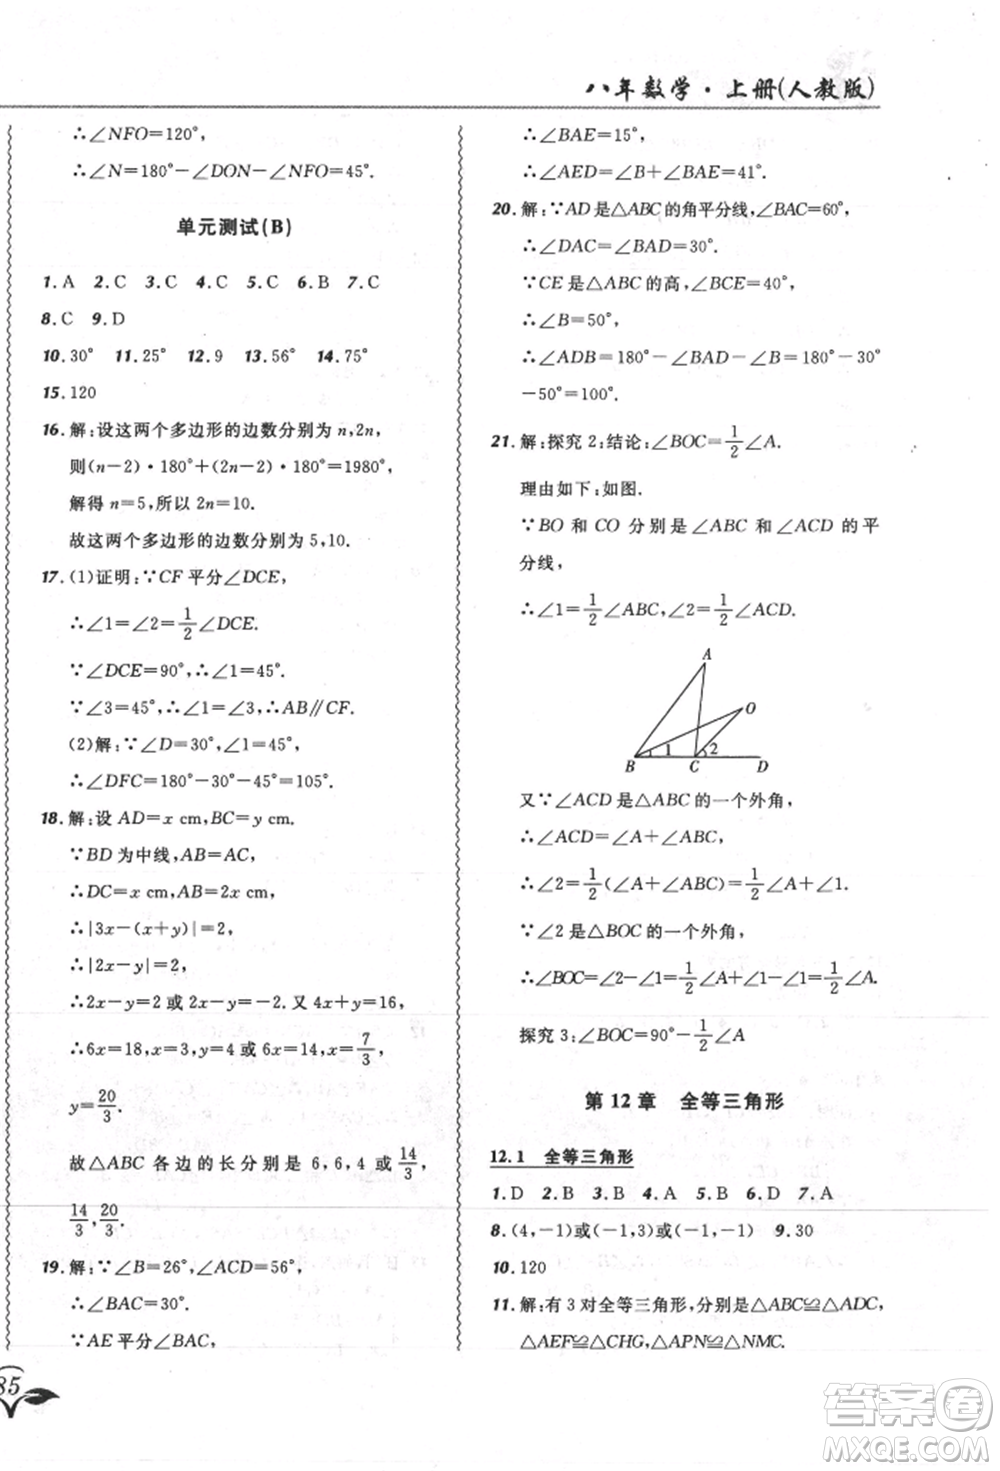 八年数学·上册(人教版)
∴∠NFO=120°,
∴∠N=180°-∠DON-∠NFO=45°.
单元测试(B)
1.A 2.C 3.C 4.C 5.C 6.B 7.C
8.C 9.D
10.30° 11.25° 12.9 13.56° 14.75°
15.120
16.解:设这两个多边形的边数分别为 n,2n,
则(n-2)·180°+(2n-2)·180°=1980°,
解得 n=5,所以 2n=10.
故这两个多边形的边数分别为 5,10.
17.(1)证明:∵CF 平分∠DCE,
∴∠1=∠2=1/2∠DCE.
∵∠DCE=90°,∴∠1=45°.
∵∠3=45°,∴∠1=∠3,∴AB∥CF.
(2)解:∵∠D=30°,∠1=45°,
∴∠DFC=180°-30°-45°=105°.
18.解:设 AD=x cm,BC=y cm.
∵BD 为中线,AB=AC,
∴DC=x cm,AB=2x cm,
∴|3x-(x+y)|=2,
∴|2x-y|=2,
∴2x-y=2 或 2x-y=-2.又 4x+y=16,
∴6x=18,x=3,y=4 或 6x=14,x=7/3,
y=20/3.
故△ABC 各边的长分别是 6,6,4 或 14/3,
14/3,20/3.
19.解:∵∠B=26°,∠ACD=56°,
∴∠BAC=30°.
∵AE 平分∠BAC,
85
∴∠BAE=15°,
∴∠AED=∠B+∠BAE=41°.
20.解:∵AD 是△ABC 的角平分线,∠BAC=60°,
∴∠DAC=∠BAD=30°.
∵CE 是△ABC 的高,∠BCE=40°,
∴∠B=50°,
∴∠ADB=180°-∠BAD-∠B=180°-30°
-50°=100°.
21.解:探究 2:结论:∠BOC=1/2∠A.
理由如下:如图.
∵BO 和 CO 分别是∠ABC 和∠ACD 的平
分线,
∴∠1=1/2∠ABC,∠2=1/2∠ACD.
A
O
1 2
B C D
又∵∠ACD 是△ABC 的一个外角,
∴∠ACD=∠A+∠ABC,
∴∠2=1/2(∠A+∠ABC)=1/2∠A+∠1.
∵∠2 是△BOC 的一个外角,
∴∠BOC=∠2-∠1=1/2∠A+∠1-∠1=1/2∠A.
探究 3:∠BOC=90°-1/2∠A
第 12 章 全等三角形
12.1 全等三角形
1.D 2.B 3.B 4.A 5.B 6.D 7.A
8.(4,-1)或(-1,3)或(-1,-1) 9.30
10.120
11.解:有 3 对全等三角形,分别是△ABC≌△ADC,
△AEF≌△CHG,△APN≌△NMC.
答案圈
MXQE.COM